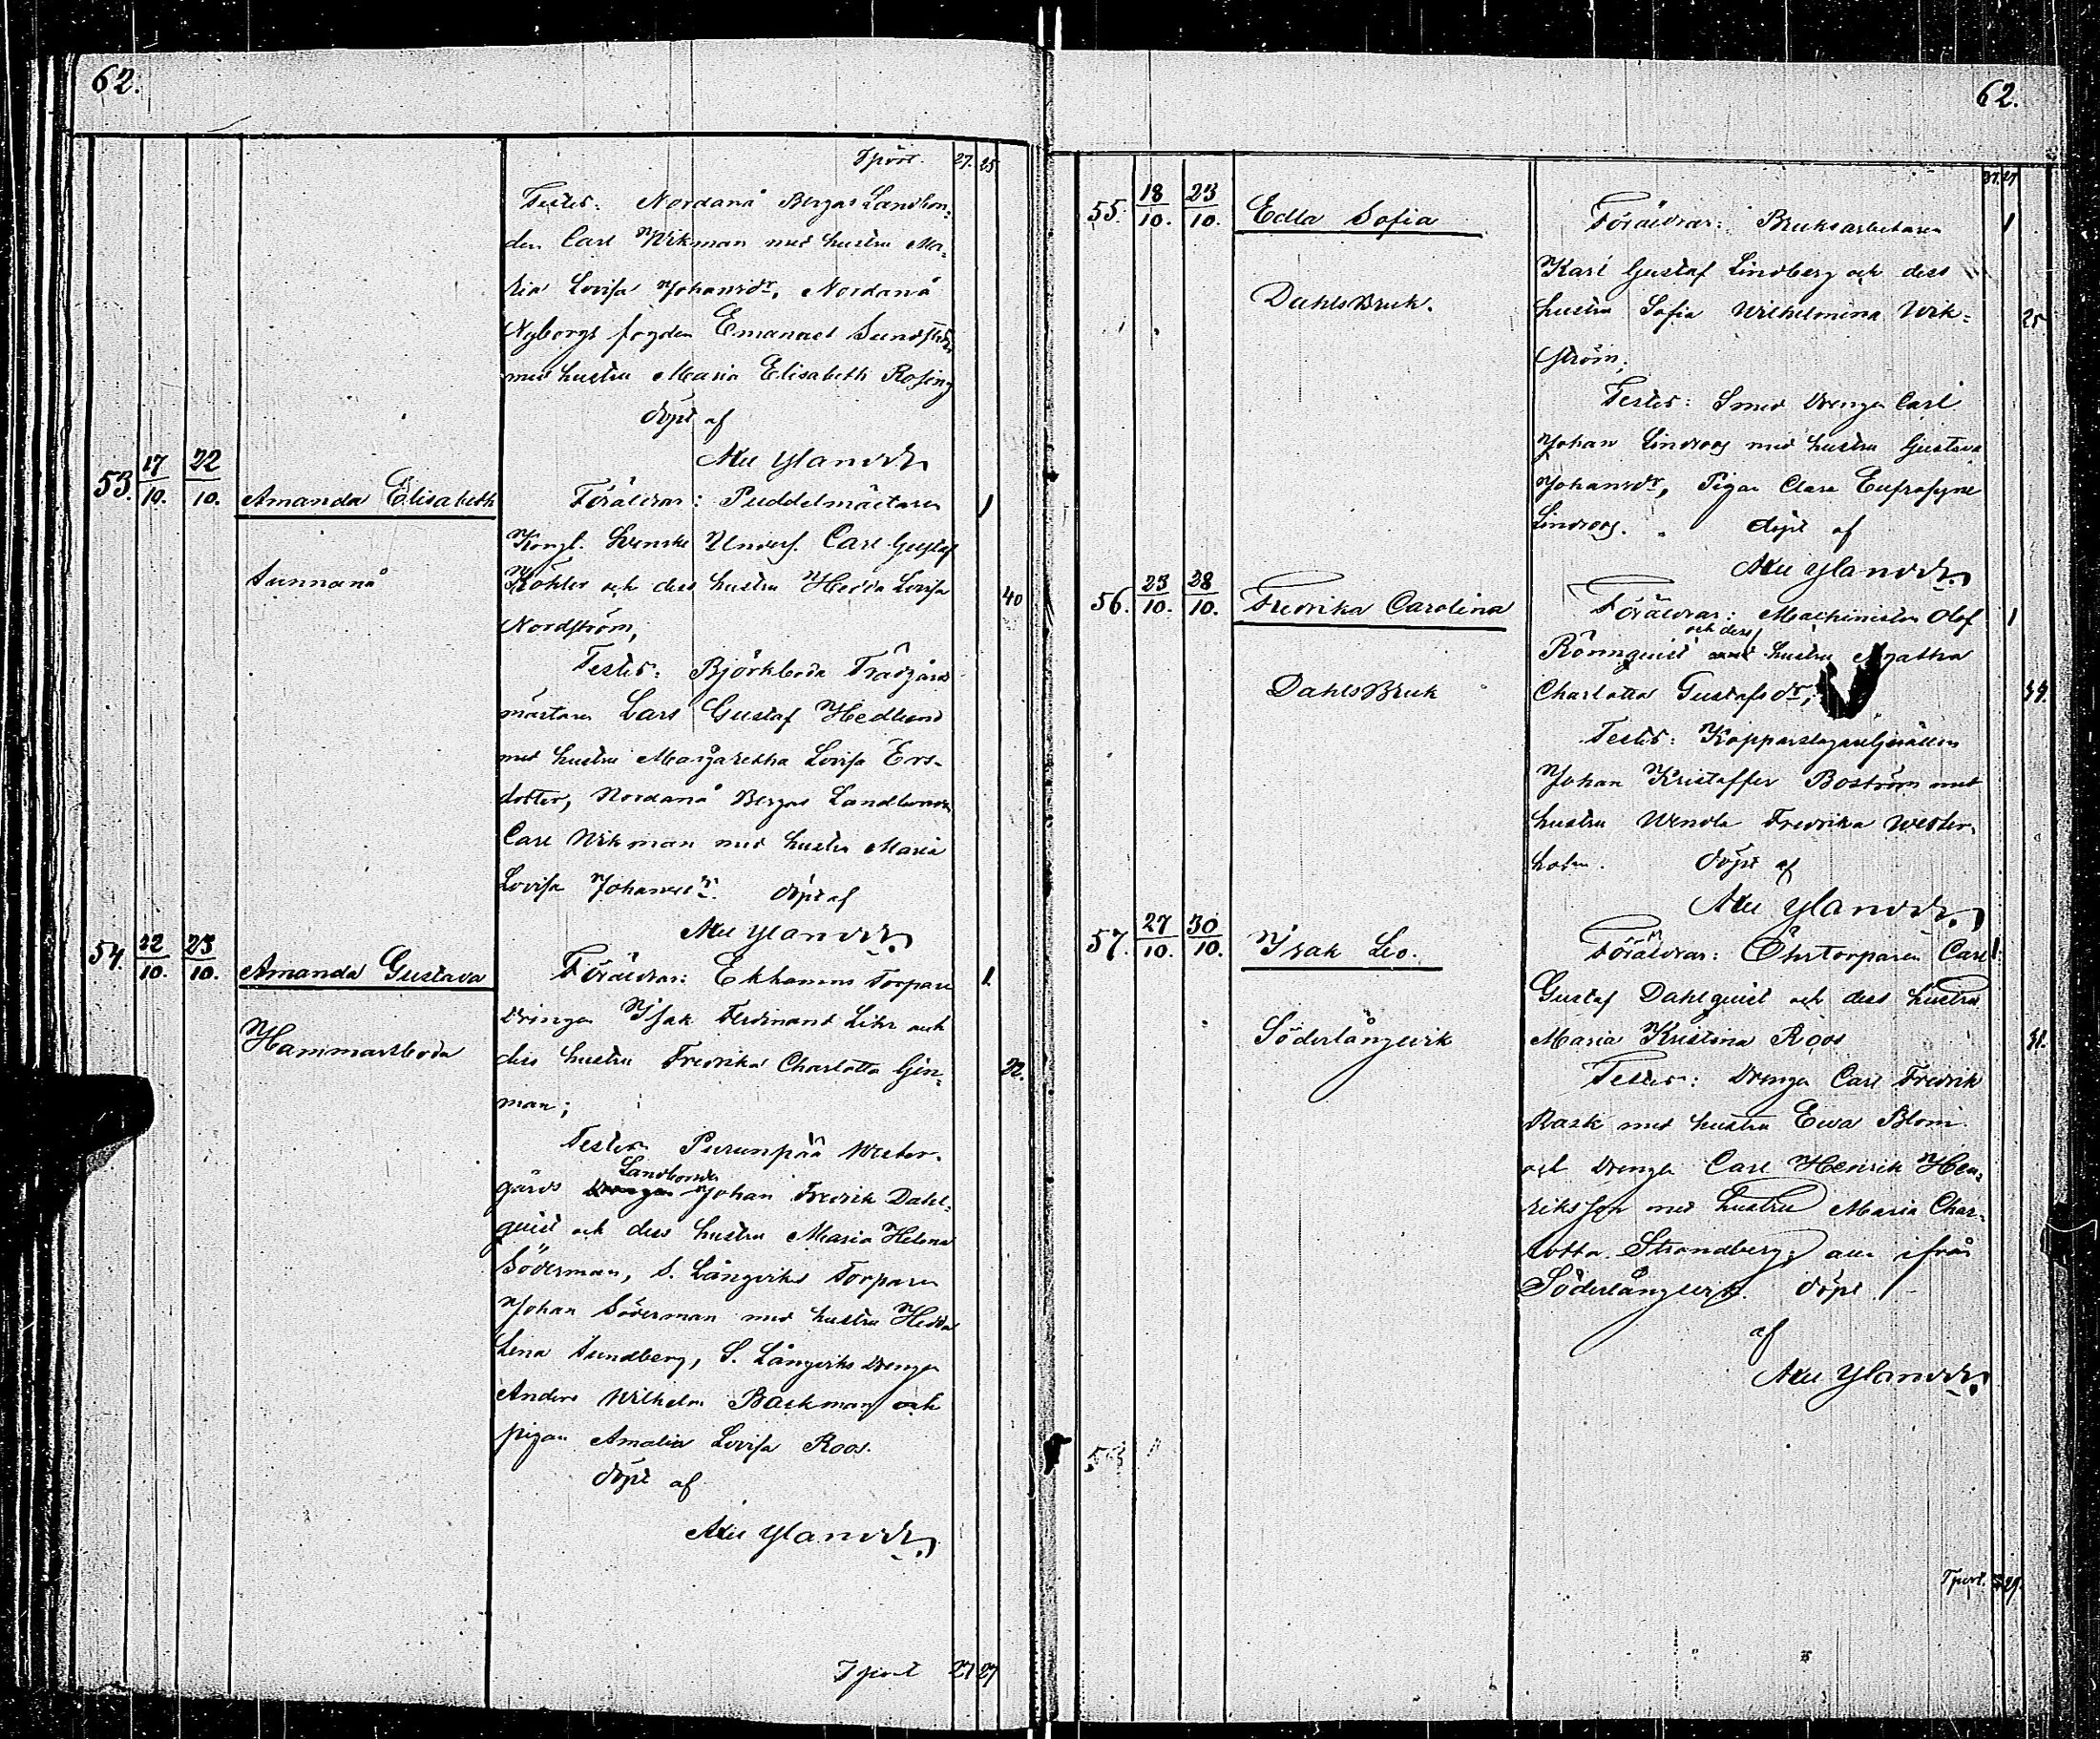 62.
Tpört. 27. 25
Testes: Nordanå Bergas Landbon-
den Carl Wikman med hustru Ma-
ria Lovisa Johansdr, Nordanå
Nyborgs fogden Emanuel Sundström
med hustru Maria Elisabeth Rosing
döpt af
Ylander
53. 17/10. 22/10. Amanda Elisabeth Föräldrar: Puddelmästaren 1
Kongl. Svenske Unders. Carl Gustaf
Sunnanå Köhler och dess hustru Hedda Lovisa 40
Nordström;
Testes: Björkboda Trädgårds
mästaren Lars Gustaf Hedlund
med hustru Margaretha Lovisa Ers-
dotter, Nordanå Bergas Landbonden
Carl Wikman med hustru Maria
Lovisa Johansdr. döpt af
Ylander
54. 22/10. 23/10. Amanda Gustava Föräldrar: Ekhamns Torpare 1.
drängen Isak Ferdinand Lihr och
Hammarsboda dess hustru Fredrika Charlotta Gin- 22.
man;
Testes Purunpää Wester-
gårds Landbonden Johan Fredrik Dahl-
quist och dess hustru Maria Helena
Söderman, S. Långviks Torparen
Johan Söderman med hustru Hedda
Lena Sundberg, S. Långviks drengen
Anders Wilhelm Backman och
pigan Amalia Lovisa Roos.
döpt af
Ylander
Tport 27 27
62.
27. 27
55. 18/10. 23/10. Edla Sofia Föräldrar: Bruksarbetaren 1
Karl Gustaf Lindberg och dess
DahlsBruk. hustru Sofia Wilhelmina Wik- 25
ström;
Testes: Smed drengen Carl
Johan Lindroos med hustru Gustava
Johansdr, Pigan Clara Eufrosyne
Lindroos. döpt af
Ylander
56. 23/10. 28/10. Fredrika Carolina Föräldrar: Machinisten Olof 1
Rönnquist och dess hustru Agatha
DahlsBruk Charlotta Gustafsdr; 34.
Testes: Kopparslagaregesällen
Johan Kristoffer Boström med
hustru Wendla Fredrika Wester-
holm. döpt af
Ylander
57. 27/10. 30/10. Isak Leo. Föräldrar: Öhrtorparen Carl 1.
Gustaf Dahlquist och dess hustru
Söderlångvik Maria Kristina Roos 31.
Testes: Drengen Carl Fredrik
Rask med hustru Ewa Blom
och drengen Carl Henrik Hen-
riksson med hustru Maria Char-
lotta Strandberg; alla ifrån
Söderlångvik. döpt
af
Ylander
58
Tport. 29.